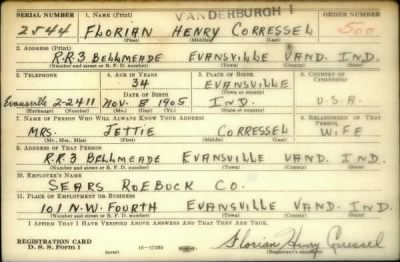 SERIAL NUMBER 1. NAME (Print) VANDERBURGH 1 ORDER NUMBER
2544 FLORIAN HENRY CORRESSEL 500
(First) (Middle) (Last)
2. ADDRESS (Print)
R.R.3 BELLMEADE EVANSVILLE VAND. IND.
(Number and street or R. F. D. number) (Town) (County) (State)
3. TELEPHONE 4. AGE IN YEARS 5. PLACE OF BIRTH 6. COUNTRY OF CITIZENSHIP
34 EVANSVILLE
DATE OF BIRTH (Town or county)
Evansville 2-2411 NOV. 8 1905 IND. U.S.A.
(Exchange) (Number) (Mo.) (Day) (Yr.) (State or country)
7. NAME OF PERSON WHO WILL ALWAYS KNOW YOUR ADDRESS 8. RELATIONSHIP OF THAT PERSON
MRS. JETTIE CORRESSEL WIFE
(Mr., Mrs., Miss) (First) (Middle) (Last)
9. ADDRESS OF THAT PERSON
R.R.3 BELLMEADE EVANSVILLE VAND. IND.
(Number and street or R. F. D. number) (Town) (County) (State)
10. EMPLOYER'S NAME
SEARS ROEBUCK CO.
11. PLACE OF EMPLOYMENT OR BUSINESS
101 N.W. FOURTH EVANSVILLE VAND. IND.
(Number and street or R. F. D. number) (Town) (County) (State)
I AFFIRM THAT I HAVE VERIFIED ABOVE ANSWERS AND THAT THEY ARE TRUE.
REGISTRATION CARD
D. S. S. Form 1 16—17105 Florian Henry Corressel
(Registrant's signature)